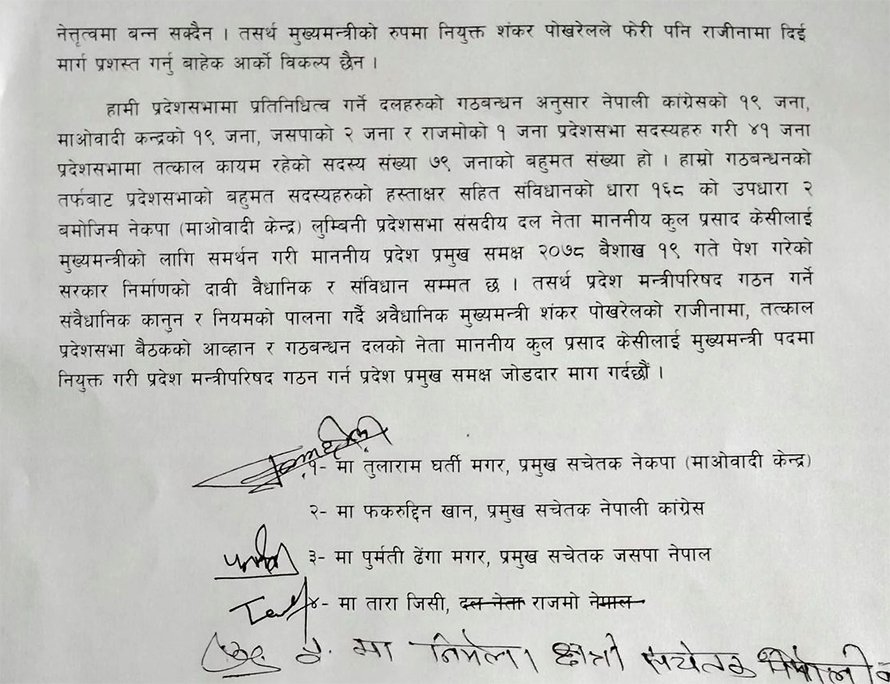 नेत्तृत्वमा बन्न सक्दैन । तसर्थ मुख्यमन्त्रीको रुपमा नियुक्त शंकर पोखरेलले फेरी पनि राजीनामा दिई
मार्ग प्रशस्त गर्नु बाहेक आर्को विकल्प छैन ।
हामी प्रदेशसभामा प्रतिनिधित्व गर्ने दलहरुको गठबन्धन अनुसार नेपाली कांग्रेसको १९ जना,
माओवादी कन्द्रको १९ जना, जसपाको २ जना र राजमोको १ जना प्रदेशसभा सदस्यहरु गरी ४१ जना
प्रदेशसभामा तत्काल कायम रहेको सदस्य संख्या ७९ जनाको बहुमत संख्या हो । हाम्रो गठबन्धनको
तर्फबाट प्रदेशसभाको बहुमत सदस्यहरुको हस्ताक्षर सहित संविधानको धारा १६८ को उपधारा २
बमोजिम नेकपा (माओवादी केन्द्र) लुम्बिनी प्रदेशसभा संसदीय दल नेता माननीय कुल प्रसाद केसीलाई
मुख्यमन्त्रीको लागि समर्थन गरी माननीय प्रदेश प्रमुख समक्ष २०७८ बैशाख १९ गते पेश गरेको
सरकार निर्माणको दावी वैधानिक र संविधान सम्मत छ । तसर्थ प्रदेश मन्त्रीपरिषद गठन गर्ने
संवैधानिक कानुन र नियमको पालना गर्दै अवैधानिक मुख्यमन्त्री शंकर पोखरेलको राजीनामा, तत्काल
प्रदेशसभा बैठकको आव्हान र गठबन्धन दलको नेता माननीय कुल प्रसाद केसीलाई मुख्यमन्त्री पदमा
नियुक्त गरी प्रदेश मन्त्रीपरिषद गठन गर्न प्रदेश प्रमुख समक्ष जोडदार माग गर्दछौं ।
१- मा तुलाराम घर्ती मगर, प्रमुख सचेतक नेकपा (माओवादी केन्द्र)
२- मा फकरुद्दिन खान, प्रमुख सचेतक नेपाली कांग्रेस
३- मा पुर्मती ढेंगा मगर, प्रमुख सचेतक जसपा नेपाल
४- मा तारा जिसी, दल नेता राजमो नेपाल
५. मा निर्मला क्षेत्री सचेतक नेपाली